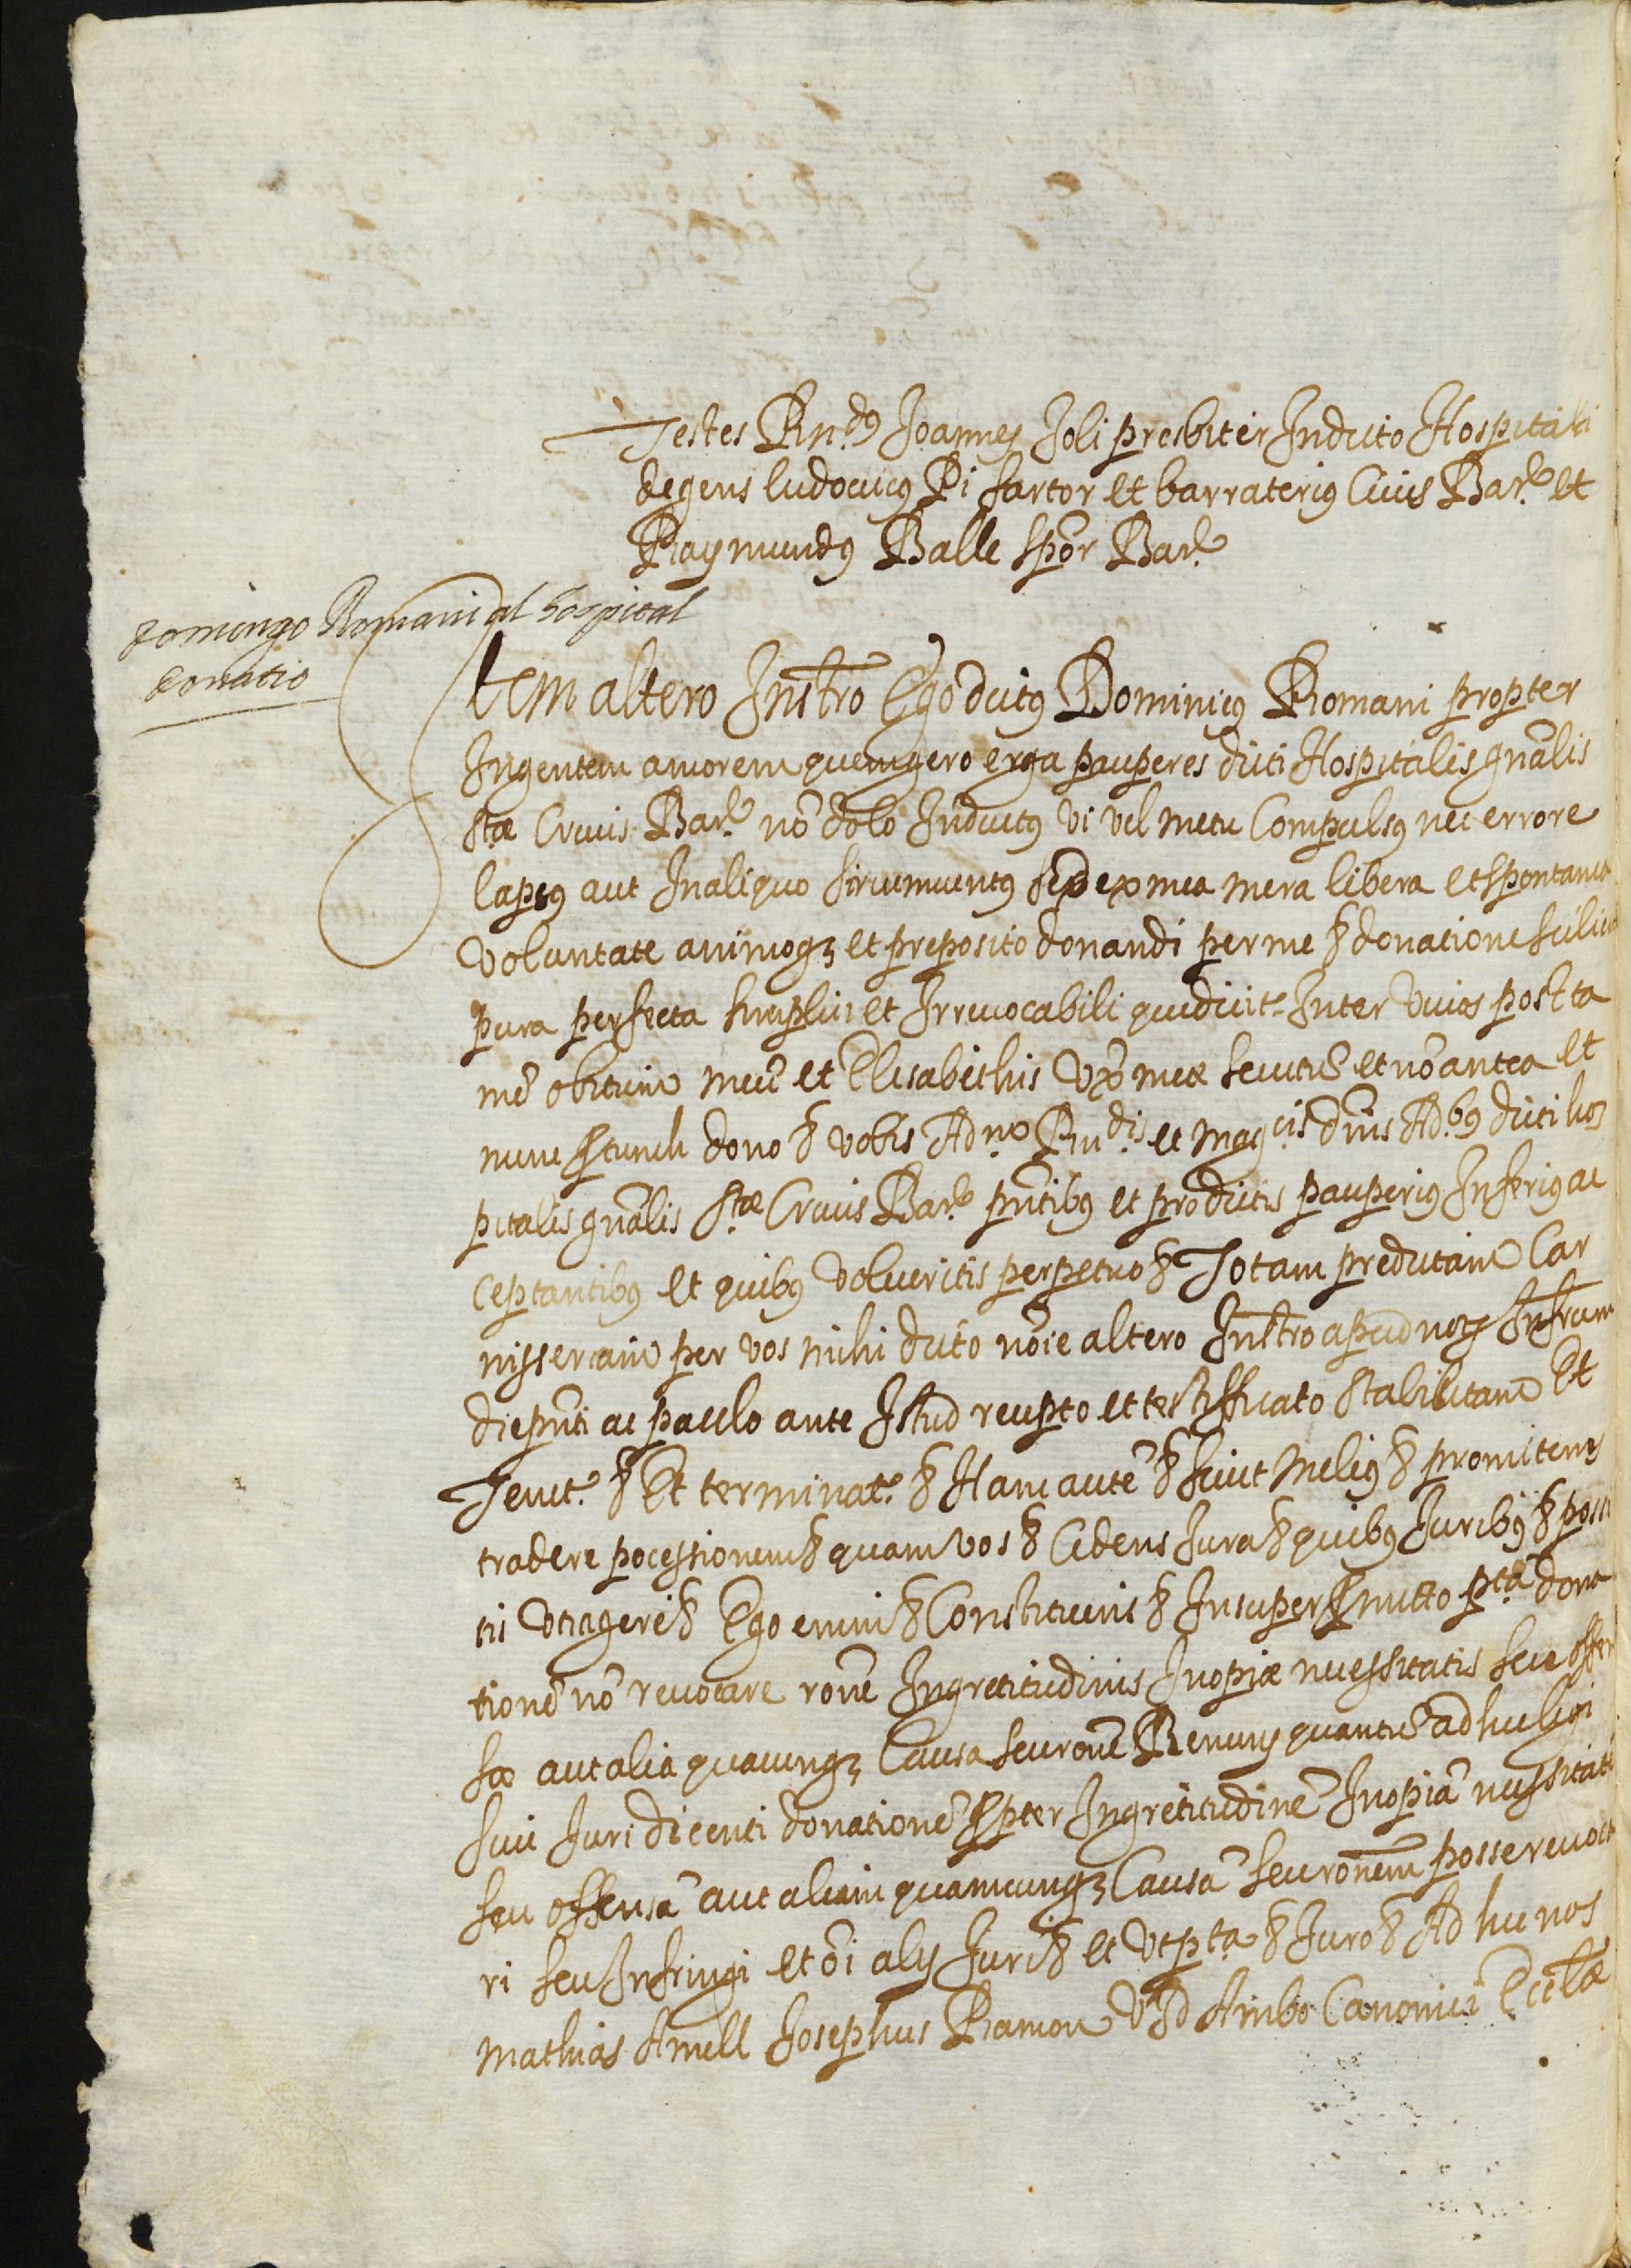 Testes Rnds Joannes Joli presbiter In dicto Hospitali
degens ludovicus Pi sartor et barraterius Civis Barne et
Raymundus Balle spōr Barne
Domingo Romani al hospital
donatio
Item altero Instro Ego dictus Dominicus Romani propter
Ingentem amorem quem gero erga pauperes dicti Hospitalis gnālis
Stæ Crucis Barne nō dolo Inductus vi vel metu Compulsus nec errore
lapsus aut In aliquo sircumventus sed ex mea mera libera et spontanea
voluntate animoq₃ et preposito donandi per me & donatione scilicet
pura perfecta simplici et Irrevocabili que dicitr Inter vivos post ta
mē obitum meū et Elisabethis Vxōr meæ secutū et nō antea et
nunc protunch dono & vobis Adm. Rndis et Magcis dnis Adbus dicti hos
pitalis gnālis Stæ Crucis Barne pntibus et pro dictis pauperius Inferius ac
ceptantibus et quibus volueritis perpetuo & Totam predictam Car
nisseriam per vos mihi dicto nōie altero Instro apud not Infrum
die pnti ac paulo ante Istud recepto et testifficato stabilitam Et
Tenet. & Et terminat. & Hanc autē & sicut Melius & promitens
tradere pocessionem & quam vos & Cedens Jura & quibus Juribus & possi
tis Vti agere & Ego enim & Constituens & Insuper promitto ptā dona
tionē nō revocare ronē Ingretitudinis Inopiæ necessitatis seu offen
sæ aut alia quacunq₃ Causa seu ronē Renuns quantū ad hec legi
sive Juri dicenti donationē propter Ingretitudinē Inopiā necessitatē
seu offensā aut aliam quamcunq₃ Causā seu ronem posse revoca
ri seu Infringi et ōi alij Juri & et Vt pta & Juro & Ad hec nos
Mathias Amell Josephus Ramon V J D Ambo Canonici Ecclæ